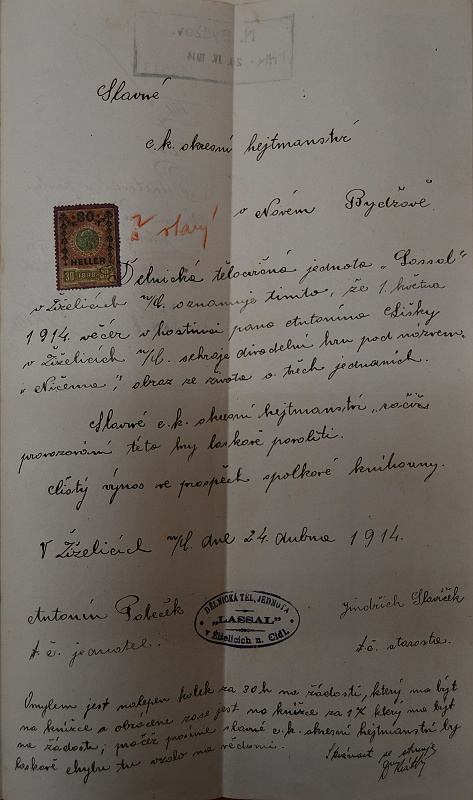 Slavné
c. k. okresní hejtmanství
v Novém Bydžově.
30
HELLER
30 1898
2 starý
Dělnická tělocvičná jednota „Lassal"
v Žiželicích n/C. oznamuje tímto, že 1. května
1914 večer v hostinci pana Antonína Lišky
v Žiželicích n/C. sehraje divadelní hru pod názvem:
„Ničema", obraz ze života o třech jednáních.
Slavné c. k. okresní hejtmanství račiž
provozování této hry laskavě povoliti.
Čistý výnos ve prospěch spolkové knihovny.
V Žiželicích n/C. dne 24. dubna 1914.
Antonín
t. č. jednatel.
DĚLNICKÁ TĚL. JEDNOTA
„LASSAL"
v Žiželicích n. Cidl.
Jindřich Slavíček
t. č. starosta.
Omylem jest nalepen kolek za 30 h na žádosti, který má být
na knížce a obráceně zase jest na knížce za 1 K který má být
na žádosti; pročež prosíme slavné c. k. okresní hejtmanství by
laskavě chybu tu vzalo na vědomí.